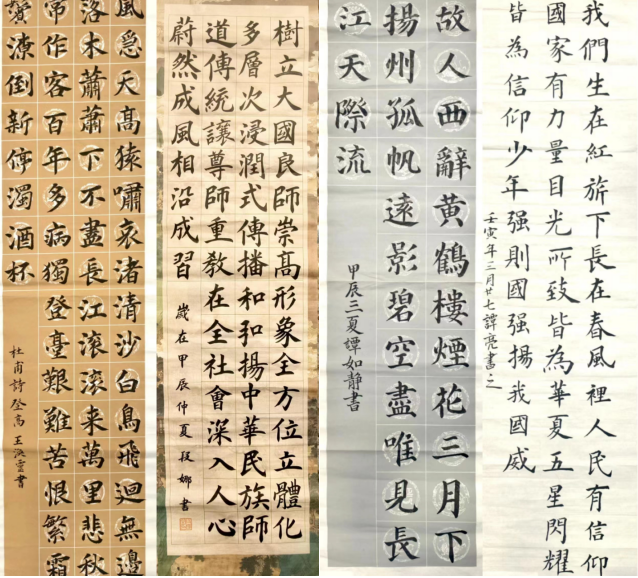 我們生在紅旂下長在春風裡人民有信仰
國家有力量目光所致皆為華夏五星閃耀
皆為信仰少年强則國强揚我國威
壬寅年三月廿七譚亮書之
故人西辭黃鶴樓煙花三月下
揚州孤帆遠影碧空盡唯見長
江天際流
甲辰三夏譚如靜書
樹立大國良師崇高形象全方位立體化
多層次浸潤式傳播和弘揚中華民族師
道傳統讓尊師重教在全社會深入人心
蔚然成風相沿成習
歲在甲辰仲夏段娜書
風急天高猿嘯哀渚清沙白鳥飛迴無邊
落木蕭蕭下不盡長江滾滾来萬里悲秋
常作客百年多病獨登臺艱難苦恨繁霜
鬢潦倒新停濁酒杯
杜甫詩登高王書